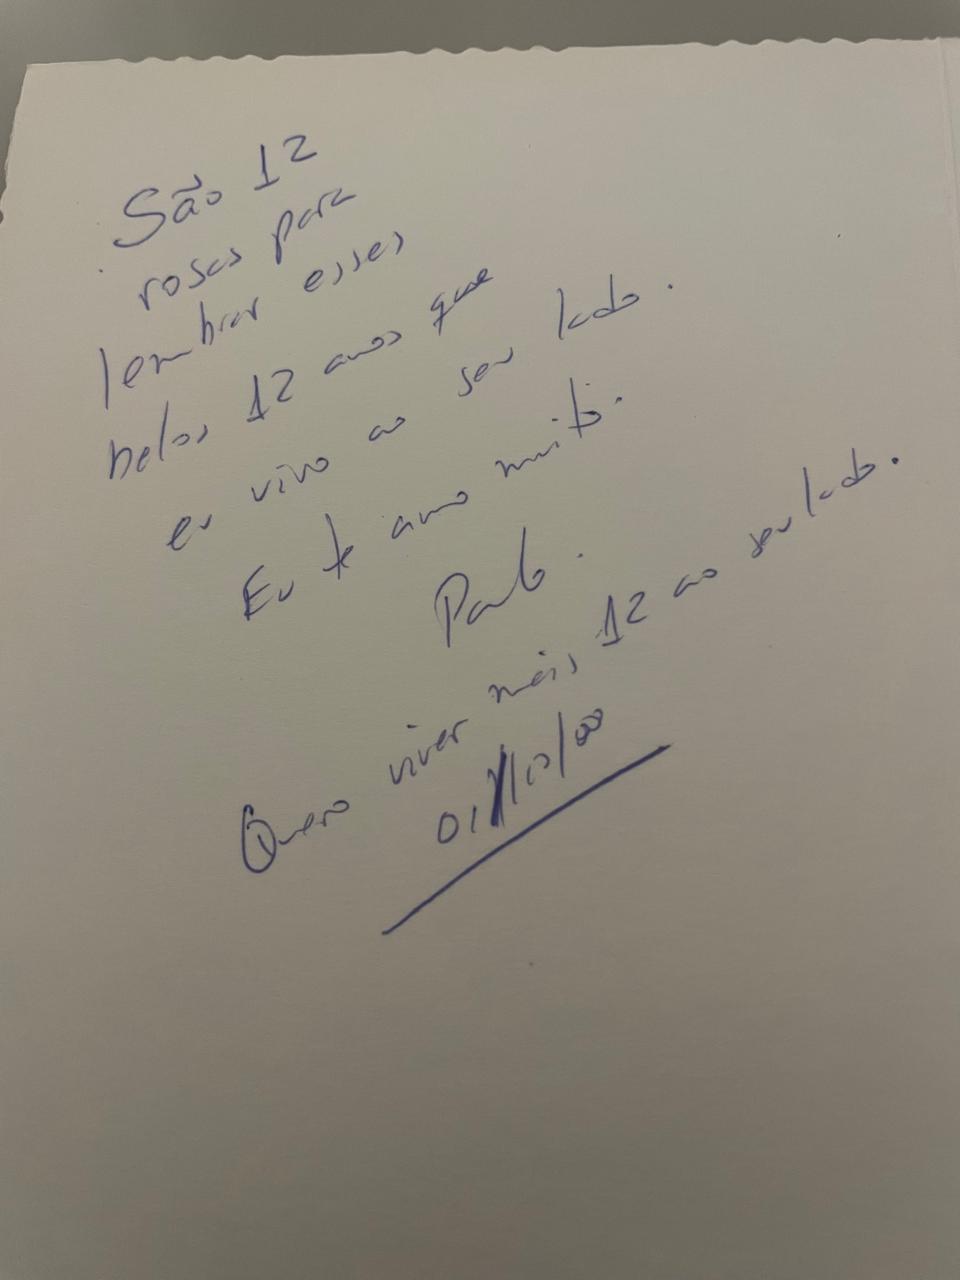 São 12
rosas para
lembrar esses
belos 12 anos que
eu vivo ao seu lado.
Eu te amo muito.
Paulo.
Quero viver mais 12 ao seu lado.
01/10/00